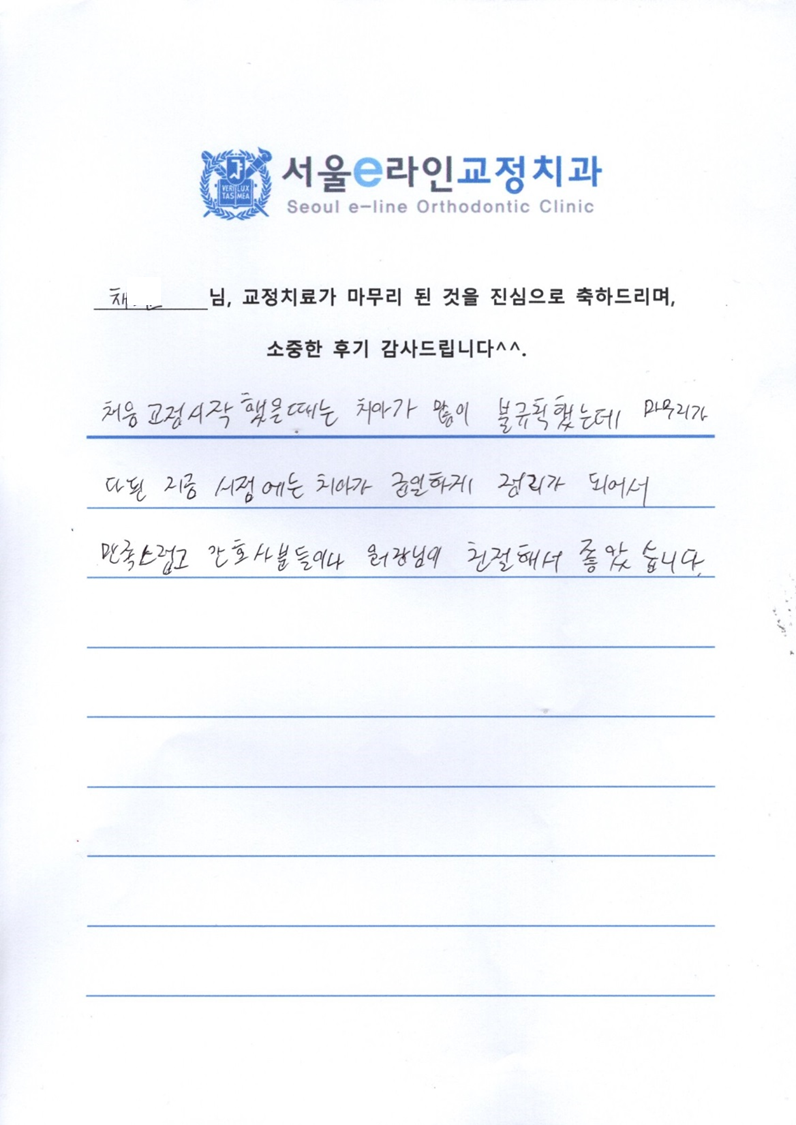 VERI LUX
TAS MEA
서울e라인교정치과
Seoul e-line Orthodontic Clinic
채 님, 교정치료가 마무리 된 것을 진심으로 축하드리며,
소중한 후기 감사드립니다^^.
처음 교정시작 했을때는 치아가 많이 불규칙했는데 마무리가
다된 지금 시점에는 치아가 균일하게 정리가 되어서
만족스럽고 간호사분들이나 원장님이 친절해서 좋았습니다.